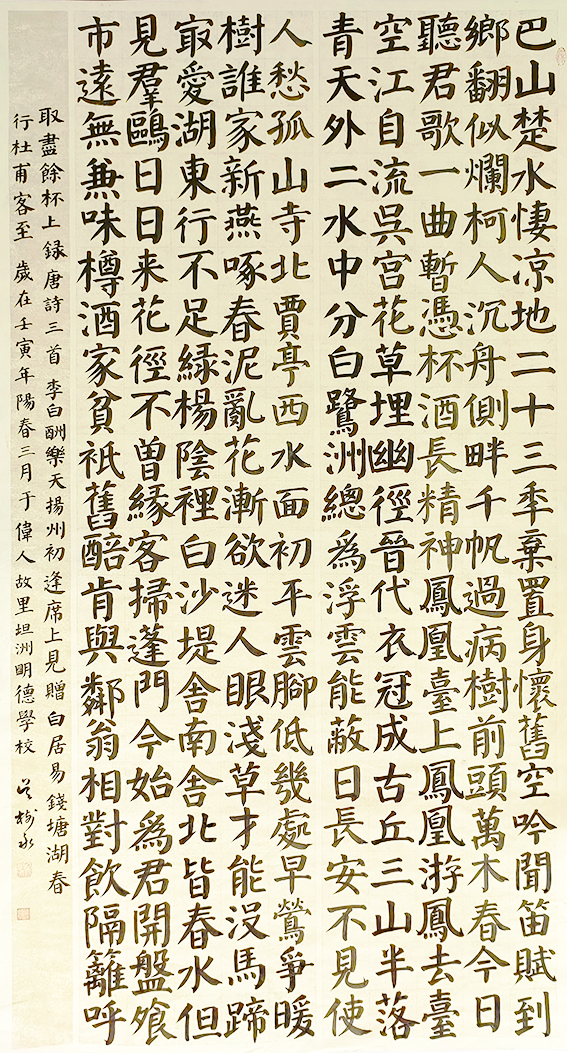 巴山楚水悽凉地二十三秊棄置身懷舊空吟聞笛賦到
鄉翻似爛柯人沉舟側畔千帆過病樹前頭萬木春今日
聽君歌一曲暫憑杯酒長精神鳳凰臺上鳳凰游鳳去臺
空江自流吳宮花草埋幽徑晉代衣冠成古丘三山半落
青天外二水中分白鷺洲總為浮雲能蔽日長安不見使
人愁孤山寺北賈亭西水面初平雲腳低幾處早鶯爭暖
樹誰家新燕啄春泥亂花漸欲迷人眼淺草才能没馬蹄
㝡愛湖東行不足緑楊陰裡白沙堤舍南舍北皆春水但
見羣鷗日日来花徑不曾緣客掃蓬門今始為君開盤飧
市遠無兼味樽酒家貧衹舊醅肯與鄰翁相對飲隔籬呼
取盡餘杯上録唐詩三首 李白酬樂天揚州初逢席上見贈白居易錢塘湖春
行杜甫客至 歲在壬寅年陽春三月于偉人故里坦洲明德學校